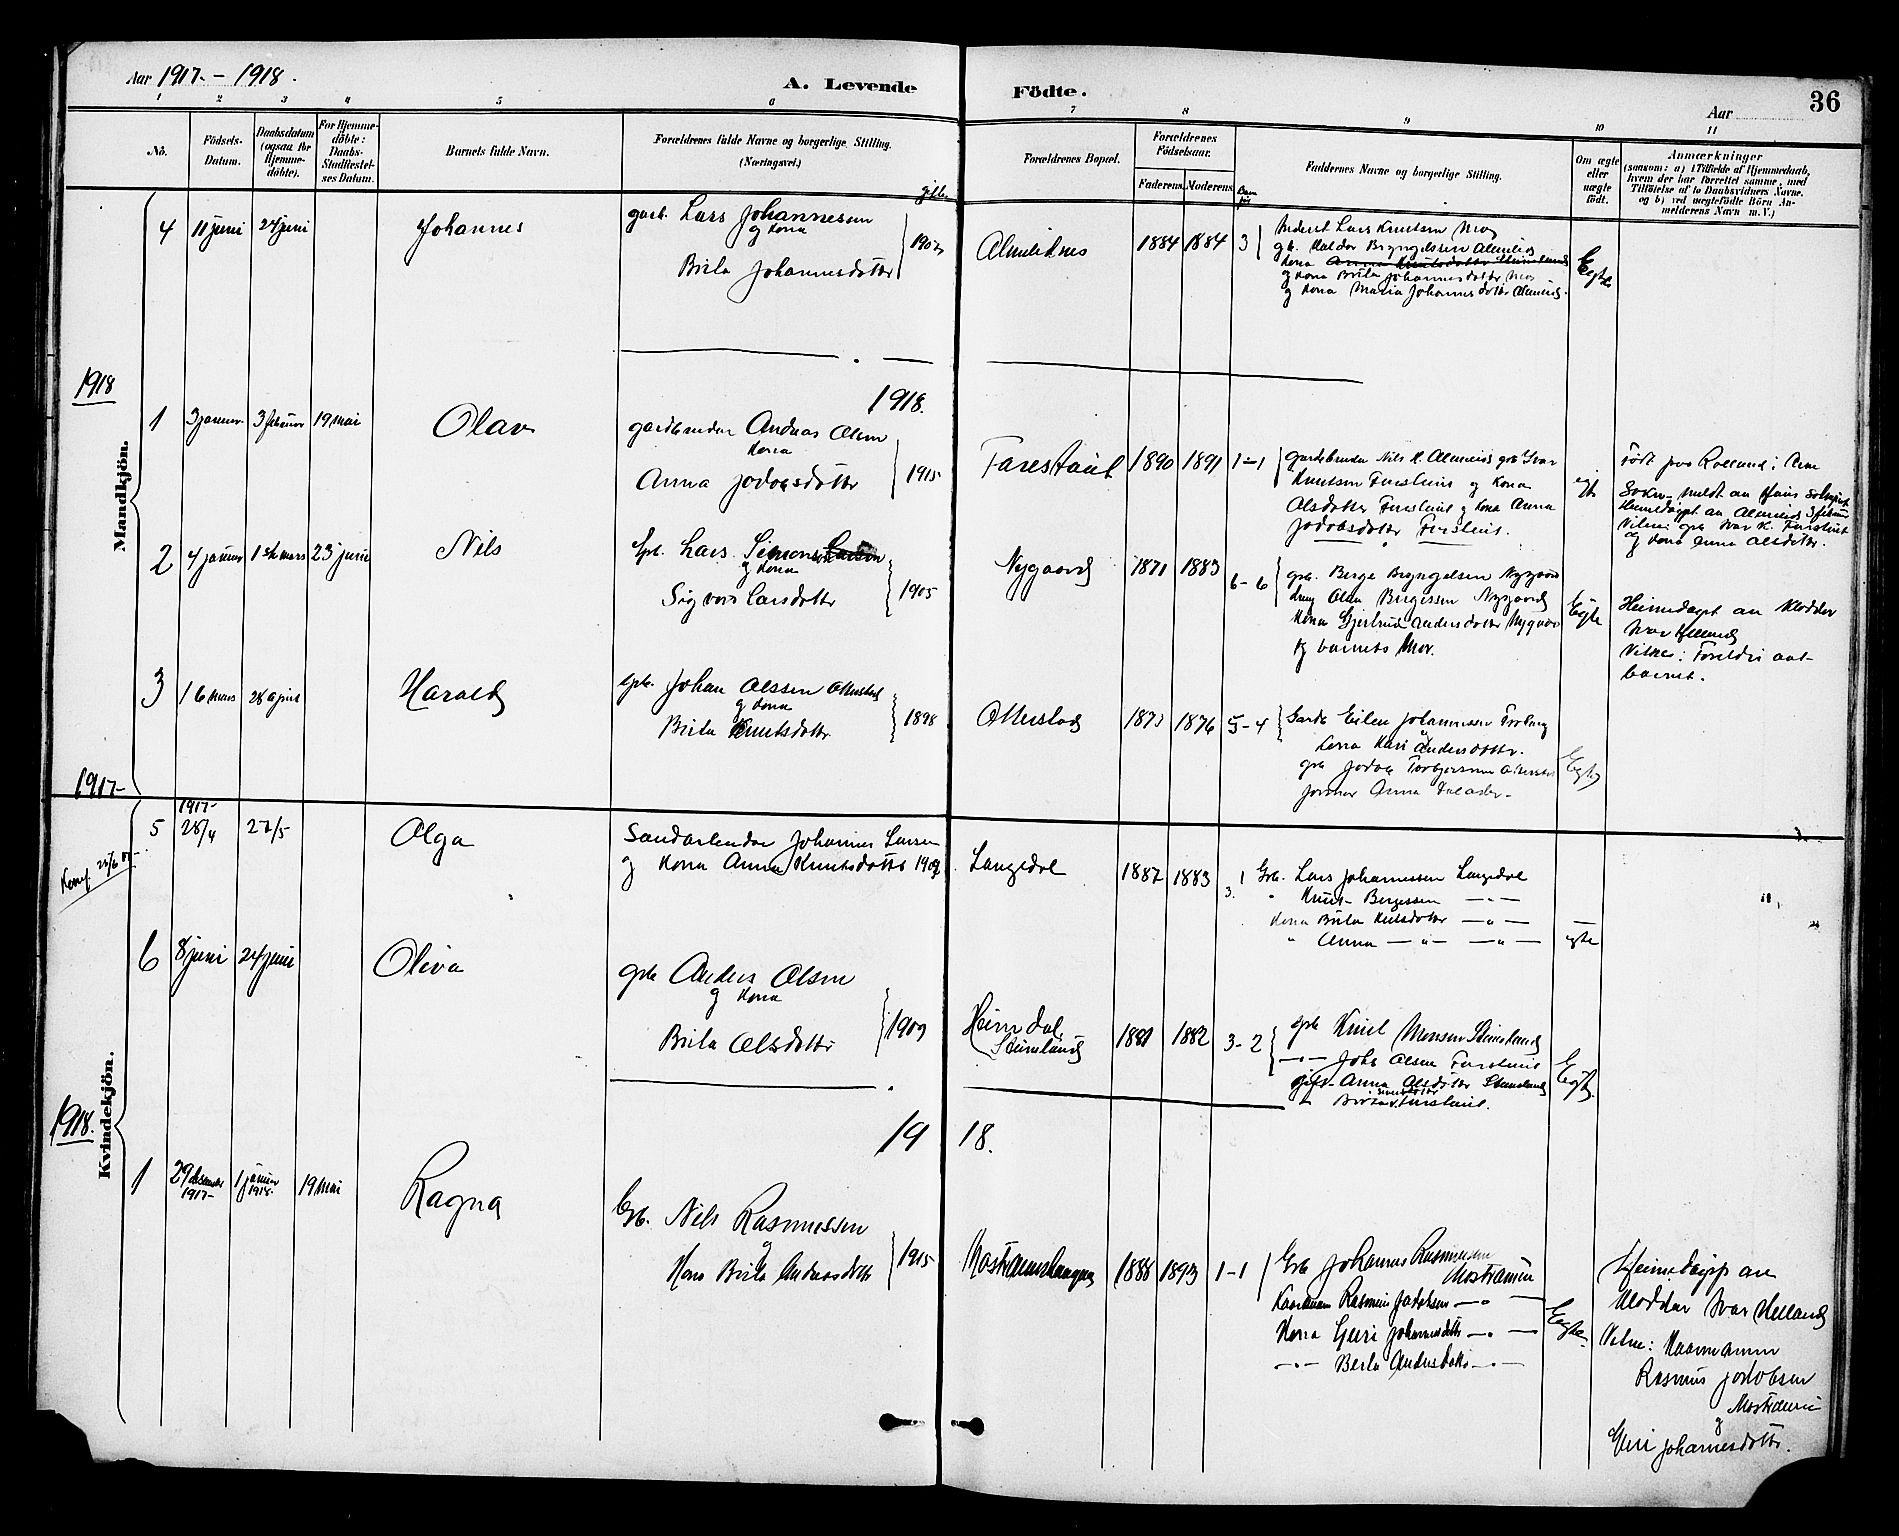 Aar 1917. - 1918.
A. Levende Födte.
Aar
36
1 2 3 4 5 6 7 8 9 10 11
No.
Födsels-Datum.
Daabsdatum (ogsaa for Hjemme-döbte).
For Hjemme-döbte: Daabs-Stadfæstel-ses Datum.
Barnets fulde Navn.
Forældrenes fulde Navne og borgerlige Stilling. (Næringsvei.)
Forældrenes Bopæl.
Forældrenes Födselsaar.
Faderens. Moderens.
Faddernes Navne og borgerlige Stilling.
Om ægte eller uægte födt.
Anmærkninger
(saasom: a) i Tilfælde af Hjemmedaab,
hvem der har forrettet samme, med
Tilföielse af to Daabsvidners Navne.
og b) ved uægtefödte Börn An-
melderens Navn m. V.)
Mandkjön.
4 11 juni 24 juni Johannes
gardb. Lars Johannesen
og kona
Brita Johannesdotter
1907
1884 1884 3
Lars Knutsen Mo
gb. Haldor Bryngelsen Almelid
kona Anna Knutsdotter
og kona Brita Johannesdotter Mo
og kona Maria Johannesdotter Almelid.
Egte
1918
1918.
1 3 januar 3 februar 19 mai Olav
gardbrukar Andreas Olsen
kona
Anna Jakobsdotter
1915
Farestveit 1890 1891 1-1
gardbrukar Nils K. Almelid gb. Ivar
Knutsen Farestveit og kona
Olsdotter Farestveit og kona Anna
Jakobsdotter Farestveit.
egte
2 4 januar 1ste mars 23 juni Nils
gb. Lars Simonsen
og kona
Sigvor Larsdotter
1905
Nygaard 1871 1883 6-6
gb. Berge Bryngelsen Nygaard
Olav Bergessen Nygaard
kona Gjertrud Andersdotter Nygaard
og barnets Mor.
Egte
Heimedøypt av klokkar
Ivar Helland
Vitne: Foreldri aat
barnet.
3 16 mars 28 april Harald
gb. Johan Olssen Otterstad
og kona
Brita Knutsdotter
1898
Otterstad 1876 5-4
Eilev Johannesen
kona Kari Andersdotter.
gb. Jakob Torbjørnsen Otterstad
Anna
Egte
1917-
Kvindekjön.
Konf. 25/6 31-
1917-
5 28/4 27/5 Olga
Sandarbeidar Johannes Larsen
og kona Anna Knutsdotter 1909
Langedal 1887 1883 3. 1
Gb. Lars Johannessen Langedal
" Knut Bergessen — " —
Kona Brita Nilsdotter — " —
" Anna — " — — " —
egte
6 8 juni 24 juni Oliva
gb. Anders Olsen
og kona
Brita Olsdotter
1909
Heimdal,
Steinsland
1881 1882 3-2
gb. Knut Monsen Steinsland
— " — Johs Olsen Farestveit
gift- Anna Olsdotter Steinsland
Farestveit.
Egte
1918.
19 18.
1 29 desember 1917- 1 januar 1918. 19 mai Ragna
Gb. Nils Rasmussen
og
Kona Brita Andreasdotter
1915
1888 1893 1-1
Gb. Johannes Rasmussen
Mostraumen
Kaarmann Rasmus Jakobsen — " —
Kona Guri Johannesdotter — " —
— " — Berta Andersdotter — " —
Egte.
Heimedøypt av
klokkar Ivar Helland
Vitne: Kaarmannen
Rasmus Jakobsen
Mostraumen
og
Guri Johannesdotter.